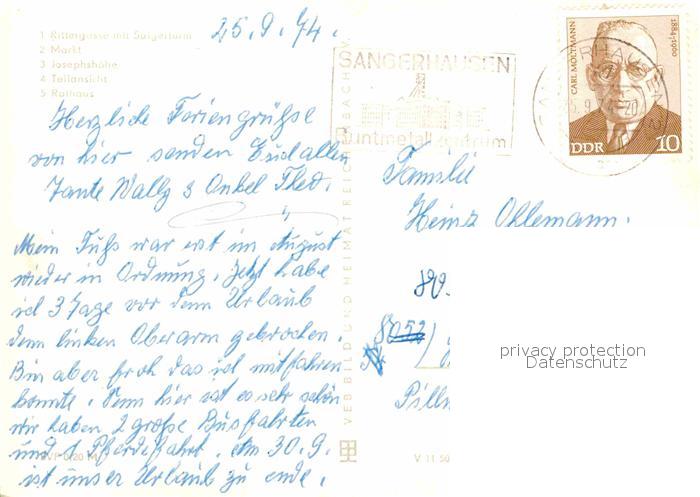 25.9.74.
1 Rittergasse mit Saigerturm
2 Markt
3 Josephshöhe
4 Teilansicht
5 Rathaus
Herzliche Feriengrüße
von hier senden Euch allen
Tante Wally & Onkel Theo.
Mein Fuß war erst im August
wieder in Ordnung. Jetzt habe
ich 3 Tage vor dem Urlaub
den linken Oberarm gebrochen.
Bin aber froh das ich mitfahren
konnte. Denn hier ist es sehr schön
wir haben 2 große Busfahrten
und 1 Pferdefahrt. Am 30.9.
ist unser Urlaub zu ende.
VEB BILD UND HEIMAT REICHENBACH I. V.
SANGERHAUSEN
Buntmetallzentrum
CARL MOLTMANN
1884-1960
DDR 10
Familie
Heinz Ohlemann.
8052
Pilln
V 11 50
privacy protection
Datenschutz